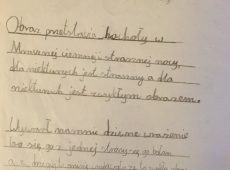 Obraz przedstawia kochały w
Mrocznej ciemnej i strasznej nocy,
dla niektórych jest straszny a dla
niektórych jest zwykłym obrazem.
Wywarł na mnie dziwne wrażenie
bo się go z jednej strony się bałam
a z drugiej